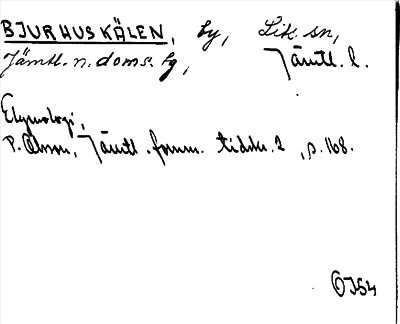 BJURHUSKÖLEN, by, Lik. sn,
Jämtl. n. doms. by, Jämtl. l.
Etymologi,
P. Olsson, Jämtl. fornm. tidskr. 2, s. 168.
OJ54